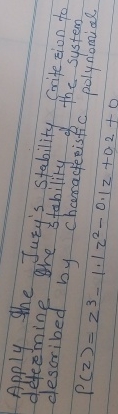 Apply the Jury's Stability Criterion to
determine the stability of the system
described by characteristic polynomial
P(z) = z³ - 1.1z² - 0.1z + 0.2 = 0